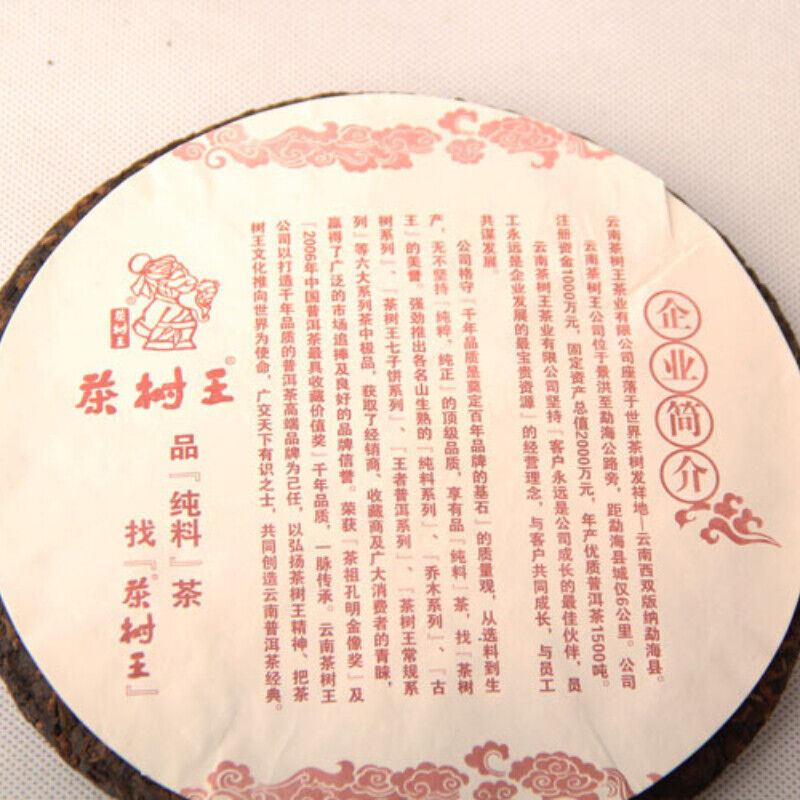 企业简介
云南茶树王茶业有限公司座落于世界茶树发祥地—云南西双版纳勐海县。
云南茶树王公司位于景洪至勐海公路旁，距勐海县城仅6公里。公司
注册资金1000万元，固定资产总值2000万元，年产优质普洱茶1500吨。
云南茶树王茶业有限公司坚持『客户永远是公司成长的最佳伙伴，员
工永远是企业发展的最宝贵资源』的经营理念，与客户共同成长，与员工
共谋发展。
公司恪守『千年品质是奠定百年品牌的基石』的质量观，从选料到生
产，无不坚持『纯粹、纯正』的顶级品质，享有品『纯料』茶，找『茶树
王』的美誉。强劲推出各名山生熟的『纯料系列』、『乔木系列』、『古
树系列』、『茶树王七子饼系列』、『王者普洱系列』、『茶树王常规系
列』等六大系列茶中极品，获取了经销商、收藏商及广大消费者的青睐，
赢得了广泛的市场追捧及良好的品牌信誉。荣获『茶祖孔明金像奖』及
『2006年中国普洱茶最具收藏价值奖』千年品质，一脉传承。云南茶树王
公司以打造千年品质的普洱茶高端品牌为己任，以弘扬茶树王精神、把茶
树王文化推向世界为使命，广交天下有识之士，共同创造云南普洱茶经典。
茶树王
®
茶树王©
品『纯料』茶
找『茶树王』